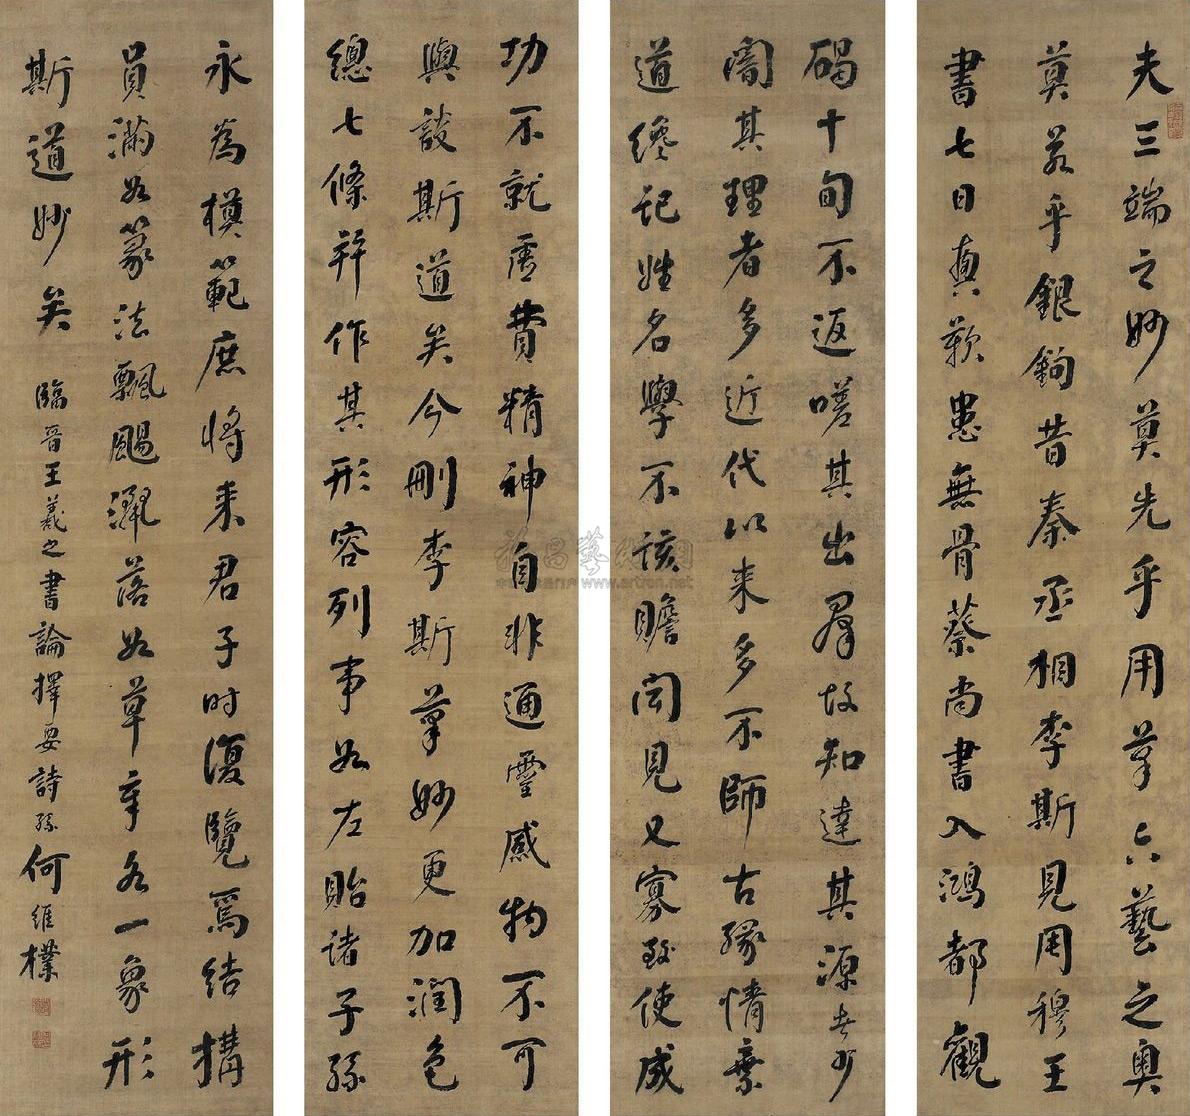 夫三端之妙莫先乎用筆六藝之奥
莫若乎銀鉤昔秦丞相李斯見周穆王
書七日興歎患無骨蔡尚書入鴻都觀
碣十旬不返嗟其出群故知達其源者少
闇其理者多近代以來多不師古緣情棄
道纔記姓名學不該贍聞見又寡致使成
功不就虛費精神自非通靈感物不可
與談斯道矣今刪李斯筆妙更加潤色
總七條并作其形容列事如左貽諸子孫
永為模範庶將來君子時復覽焉結構
員滿如篆法飄颺灑落如草章各一象形
斯道妙矣 臨晉王羲之書論擇要 詩孫何維樸
www.artron.net